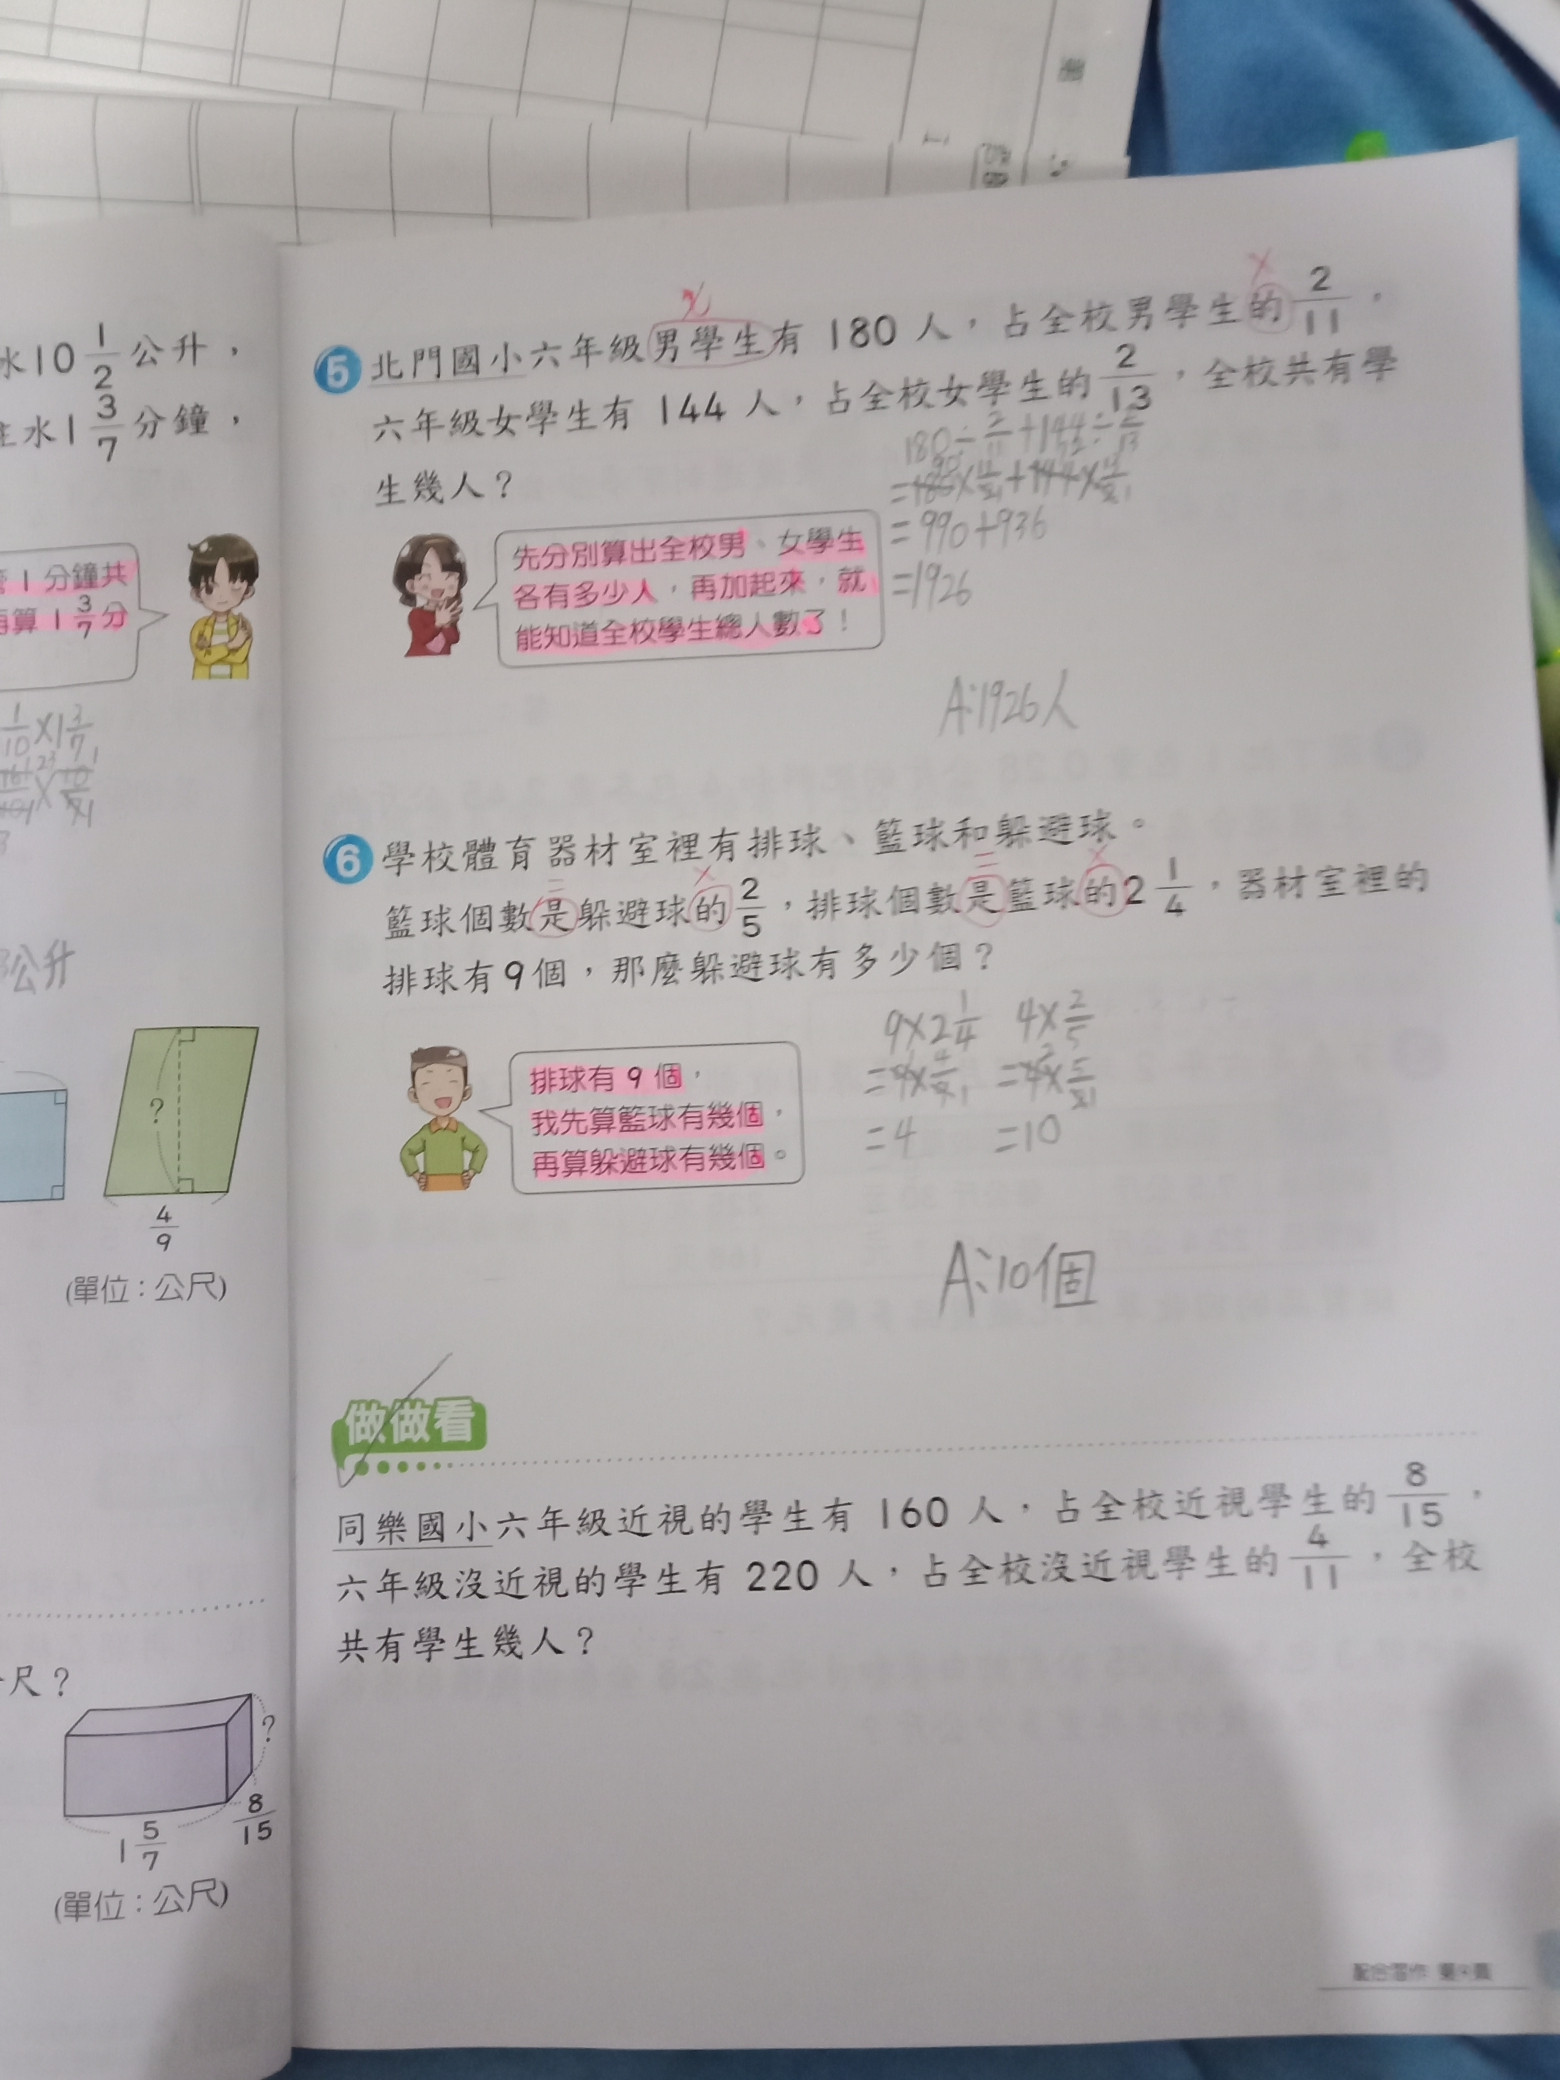 水10 1/2 公升，
注水1 3/7 分鐘，
1分鐘共
再算 1 3/7 分
1/10×1 3/7
公升
?
4/9
(單位：公尺)
尺？
?
8/15
1 5/7
(單位：公尺)
x
x
5 北門國小六年級男學生有 180 人，占全校男學生的 2/11，
六年級女學生有 144 人，占全校女學生的 2/13，全校共有學
生幾人？
180÷2/11+144÷2/13
=180×11/2+144×13/2
=990+936
=1926
先分別算出全校男、女學生
各有多少人，再加起來，就
能知道全校學生總人數了！
A:1926人
6 學校體育器材室裡有排球、籃球和躲避球。
= x = x
籃球個數是躲避球的 2/5，排球個數是籃球的 2 1/4，器材室裡的
排球有9個，那麼躲避球有多少個？
9×2 1/4 4×2/5
=9×4/9 =4×5/2
=4 =10
排球有 9 個，
我先算籃球有幾個，
再算躲避球有幾個。
A:10個
做做看
同樂國小六年級近視的學生有 160 人，占全校近視學生的 8/15，
六年級沒近視的學生有 220 人，占全校沒近視學生的 4/11，全校
共有學生幾人？
配合習作